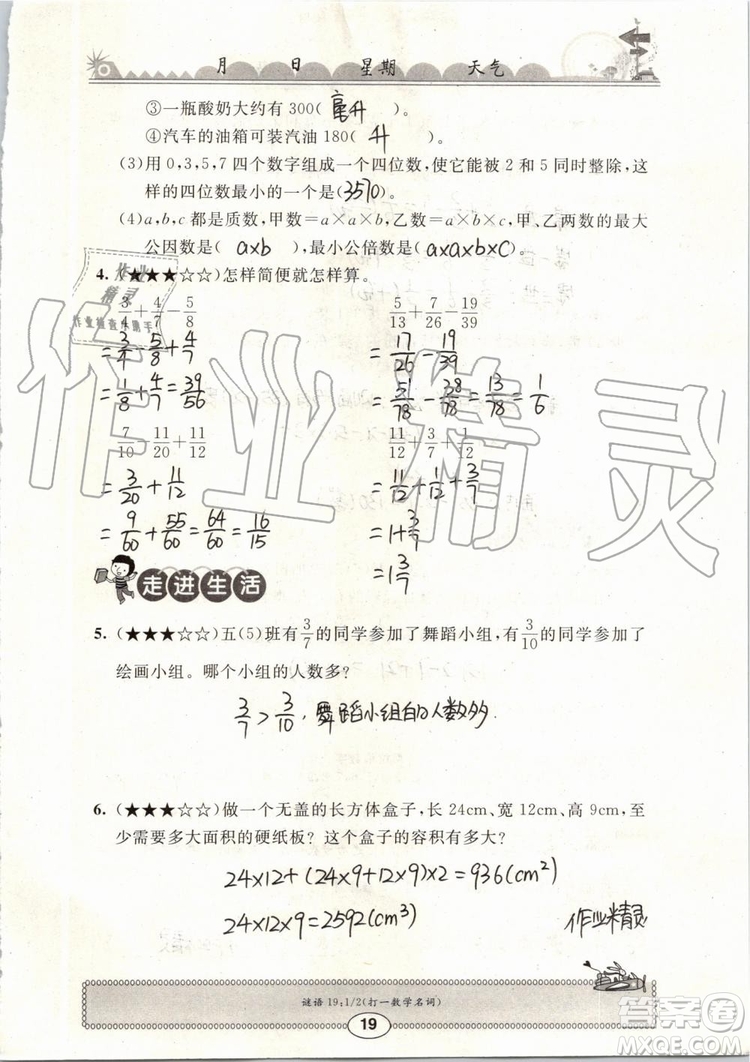 月 日 星期 天气
③一瓶酸奶大约有300( 毫升 )。
④汽车的油箱可装汽油180( 升 )。
(3)用0,3,5,7四个数字组成一个四位数,使它能被2和5同时整除,这
样的四位数最小的一个是(3570)。
(4)a,b,c都是质数,甲数=a×a×b,乙数=a×b×c,甲、乙两数的最大
公因数是( a×b ),最小公倍数是( a×a×b×c )。
4. (★★★☆☆)怎样简便就怎样算。
3/4+4/7-5/8 5/13+7/26-19/39
=3/4-5/8+4/7 =17/26-19/39
=1/8+4/7=39/56 =51/78-38/78=13/78=1/6
7/10-11/20+11/12 11/12+3/7+1/12
=3/20+11/12 =11/12+1/12+3/7
=9/60+55/60=64/60=16/15 =1+3/7
=1 3/7
走进生活
5. (★★★☆☆)五(5)班有3/7的同学参加了舞蹈小组,有3/10的同学参加了
绘画小组。哪个小组的人数多?
3/7>3/10,舞蹈小组的人数多.
6. (★★★☆☆)做一个无盖的长方体盒子,长24cm、宽12cm、高9cm,至
少需要多大面积的硬纸板?这个盒子的容积有多大?
24×12+(24×9+12×9)×2=936(cm²)
24×12×9=2592(cm³)
作业精灵
谜语19:1/2(打一数学名词)
19
作业精灵
作业
精灵
作业检查小助手
答案圈
MXQE.COM